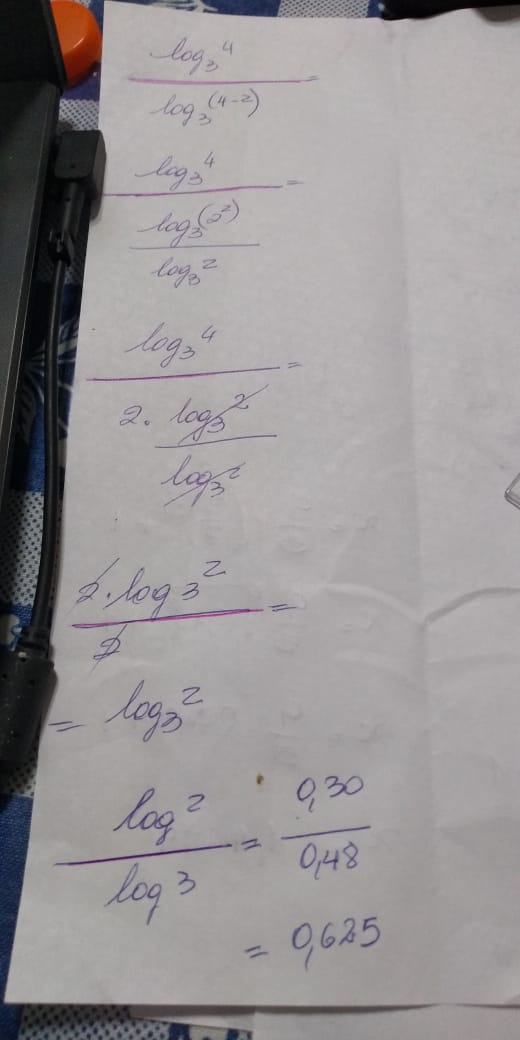 log₃⁴
=
log₃(4-2)
log₃⁴
=
log₃(2²)
log₃²
log₃⁴
=
2. log₃²
log₃²
2.log₃²
=
2
= log₃²
log² = 0,30
log3 0,48
= 0,625